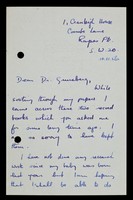 1, Cranleigh House
Combe Lane
Raynes Pk.
S.W.20
Dear Dr. Ginsburg,
While
sorting through my papers I
came across these two record
books which you asked me
for some long time ago. I
am so sorry to have kept
them.
I am not doing any research
work since my baby was born
last year but I am hoping
that I shall be able to do